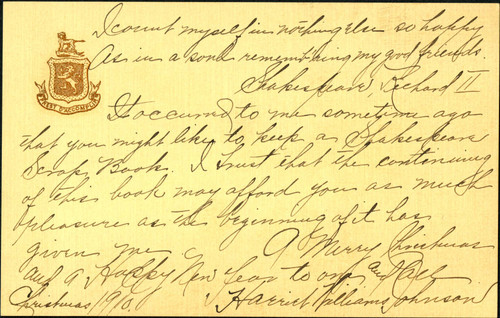 I count myself in nothing else so happy
As in a soul remembering my good friends.
Shakespeare, Richard II
It occurred to me sometime ago
that you might like to keep a Shakespeare
Scrap Book. I trust that the continuing
of this book may afford you as much
pleasure as the beginning of it has
given me. A Merry Christmas
and a Happy New Year to one and all
Christmas 1910. Harriet Williams Johnson